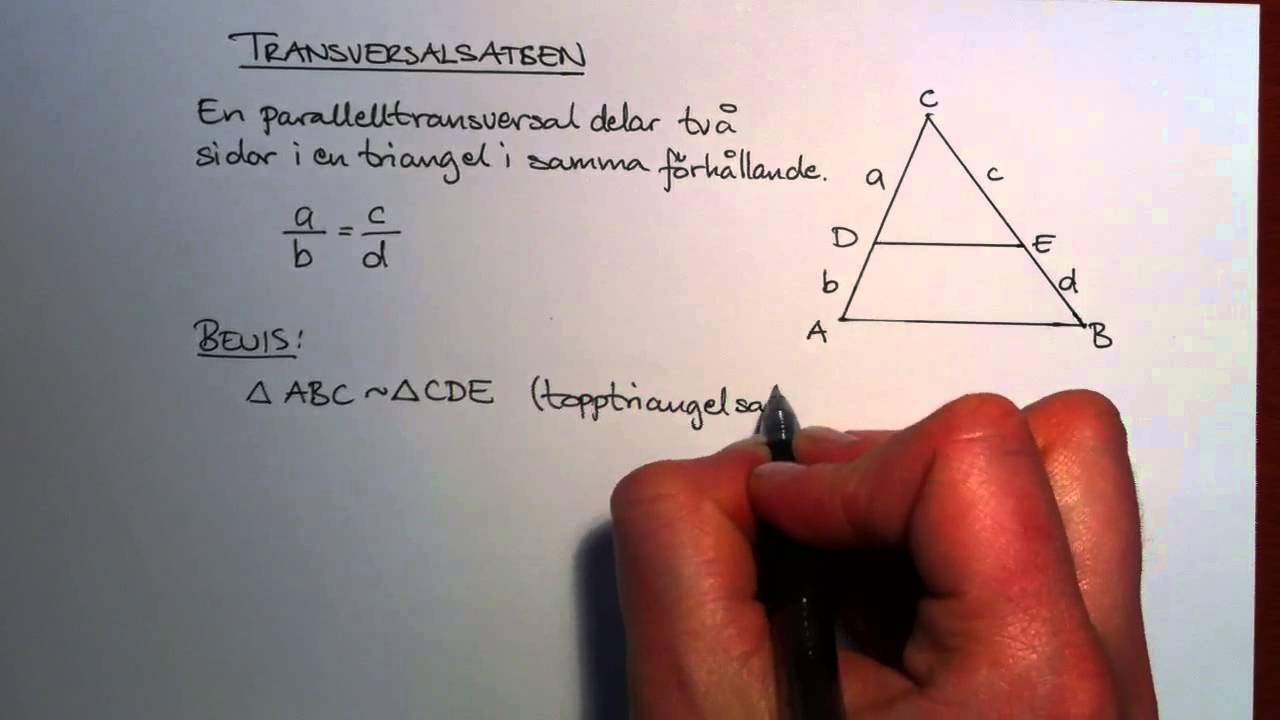 TRANSVERSALSATSEN
En paralelltransversal delar två
sidor i en triangel i samma förhållande.
a/b = c/d
BEVIS:
△ ABC ~ △ CDE (topptriangelsa
C
a
c
D
E
b
d
A
B